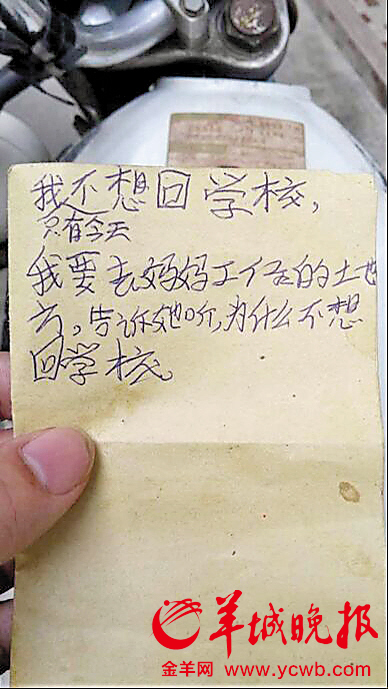 我不想回学校,
只有今天
我要去妈妈工作的地
方,告诉她吖,为什么不想
回学校
羊城晚报
金羊网 www.ycwb.com